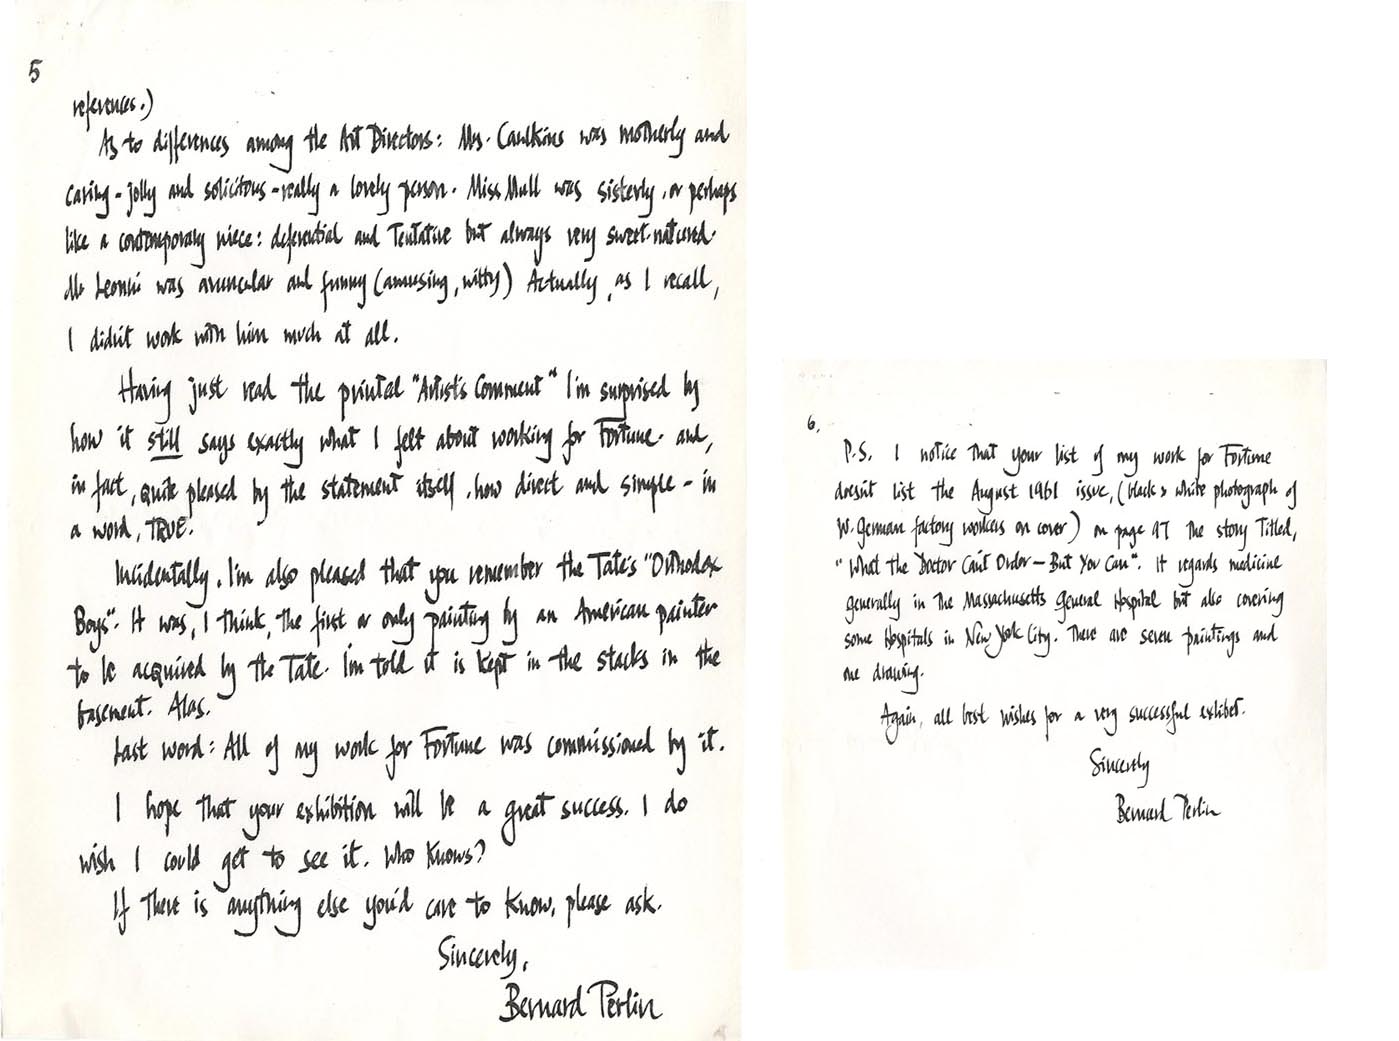 5
references.)
As to differences among the Art Directors: Ms. Caulkins was motherly and
caring - jolly and solicitous - really a lovely person. Miss Mull was sisterly, or perhaps
like a contemporary niece: deferential and tentative but always very sweet-natured.
Mr Leonni was avuncular and funny (amusing, witty) Actually, as I recall,
I didn't work with him much at all.
Having just read the printed "Artist's Comment" I'm surprised by
how it still says exactly what I felt about working for Fortune. and,
in fact, quite pleased by the statement itself, how direct and simple - in
a word, TRUE.
Incidentally, I'm also pleased that you remember the Tate's "Orthodox
Boys". It was, I think, the first or only painting by an American painter
to be acquired by the Tate. I'm told it is kept in the stacks in the
basement. Alas.
Last word: All of my work for Fortune was commissioned by it.
I hope that your exhibition will be a great success. I do
wish I could get to see it. Who knows?
If there is anything else you'd care to know, please ask.
Sincerely,
Bernard Perlin
6.
P.S. I notice that your list of my work for Fortune
doesn't list the August 1961 issue, (black & white photograph of
W. German factory workers on cover) on page 97 the story titled,
"What the Doctor Can't Order — But You Can". It regards medicine
generally in the Massachusetts General Hospital but also covering
some Hospitals in New York City. There are seven paintings and
one drawing.
Again, all best wishes for a very successful exhibit.
Sincerely
Bernard Perlin